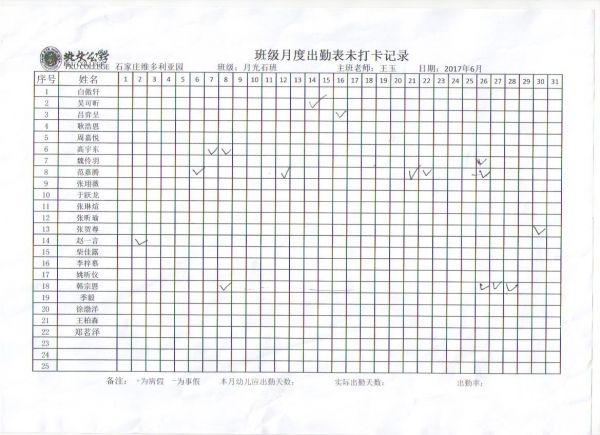 班级月度出勤表未打卡记录
PKU COLLEGE 石家庄维多利亚园 班级：月光石班 主班老师：王玉 日期：2017年6月
序号 姓名 1 2 3 4 5 6 7 8 9 10 11 12 13 14 15 16 17 18 19 20 21 22 23 24 25 26 27 28 29 30 31
1 白傲轩
2 吴可昕
3 吕弈呈
4 耿浩恩
5 周嘉悦
6 高宇东
7 魏伶羽
8 范嘉腾
9 张翊薇
10 于跃龙
11 张琳煊
12 张昕瑜
13 张贺尊
14 赵一言
15 柴佳露
16 李梓慕
17 姚昕仪
18 韩宗恩
19 季毅
20 徐渤洋
21 王柏森
22 郑茗泽
23
24
25
备注： -为病假 -为事假 本月幼儿应出勤天数： 实际出勤天数： 出勤率：